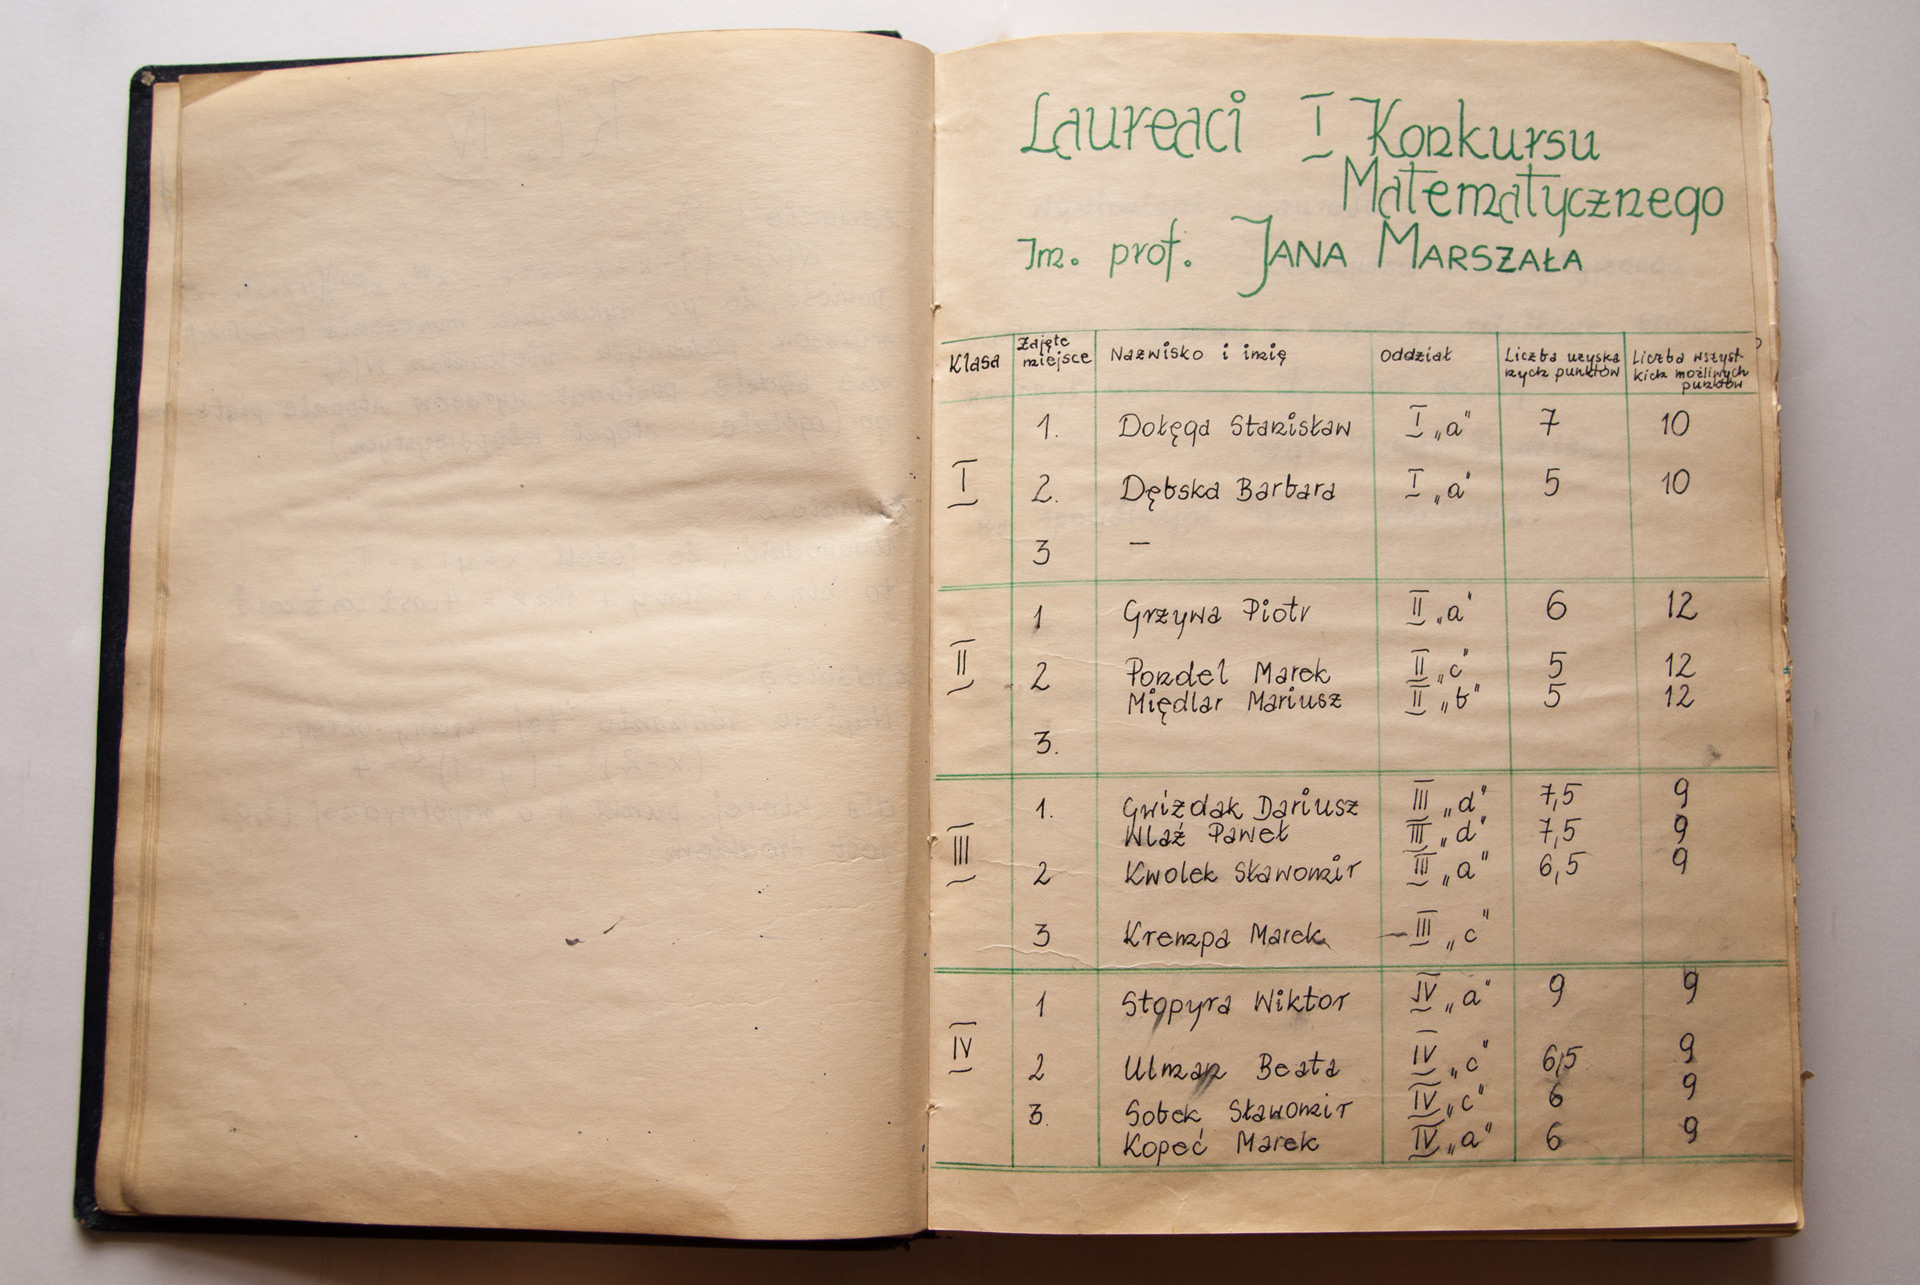 Laureaci I Konkursu
Matematycznego
Im. prof. JANA MARSZAŁA
Klasa Zajęte miejsce Nazwisko i imię oddział Liczba uzyska nych punktów Liczba wszyst- kich możliwych punktów
I
1. Dołęga Stanisław I „a" 7 10
2. Dębska Barbara I „a" 5 10
3 –
II
1 Grzywa Piotr II „a" 6 12
2 Pondel Marek II „c" 5 12
Międlar Mariusz II „b" 5 12
3.
III
1. Gwizdak Dariusz III „d" 7,5 9
Wlaź Paweł III „d" 7,5 9
2 Kwolek Sławomir III „a" 6,5 9
3 Krempa Marek – III „c"
IV
1 Stopyra Wiktor IV „a" 9 9
2 Ulman Beata IV „c" 6,5 9
3. Sobek Sławomir IV „c" 6 9
Kopeć Marek IV „a" 6 9